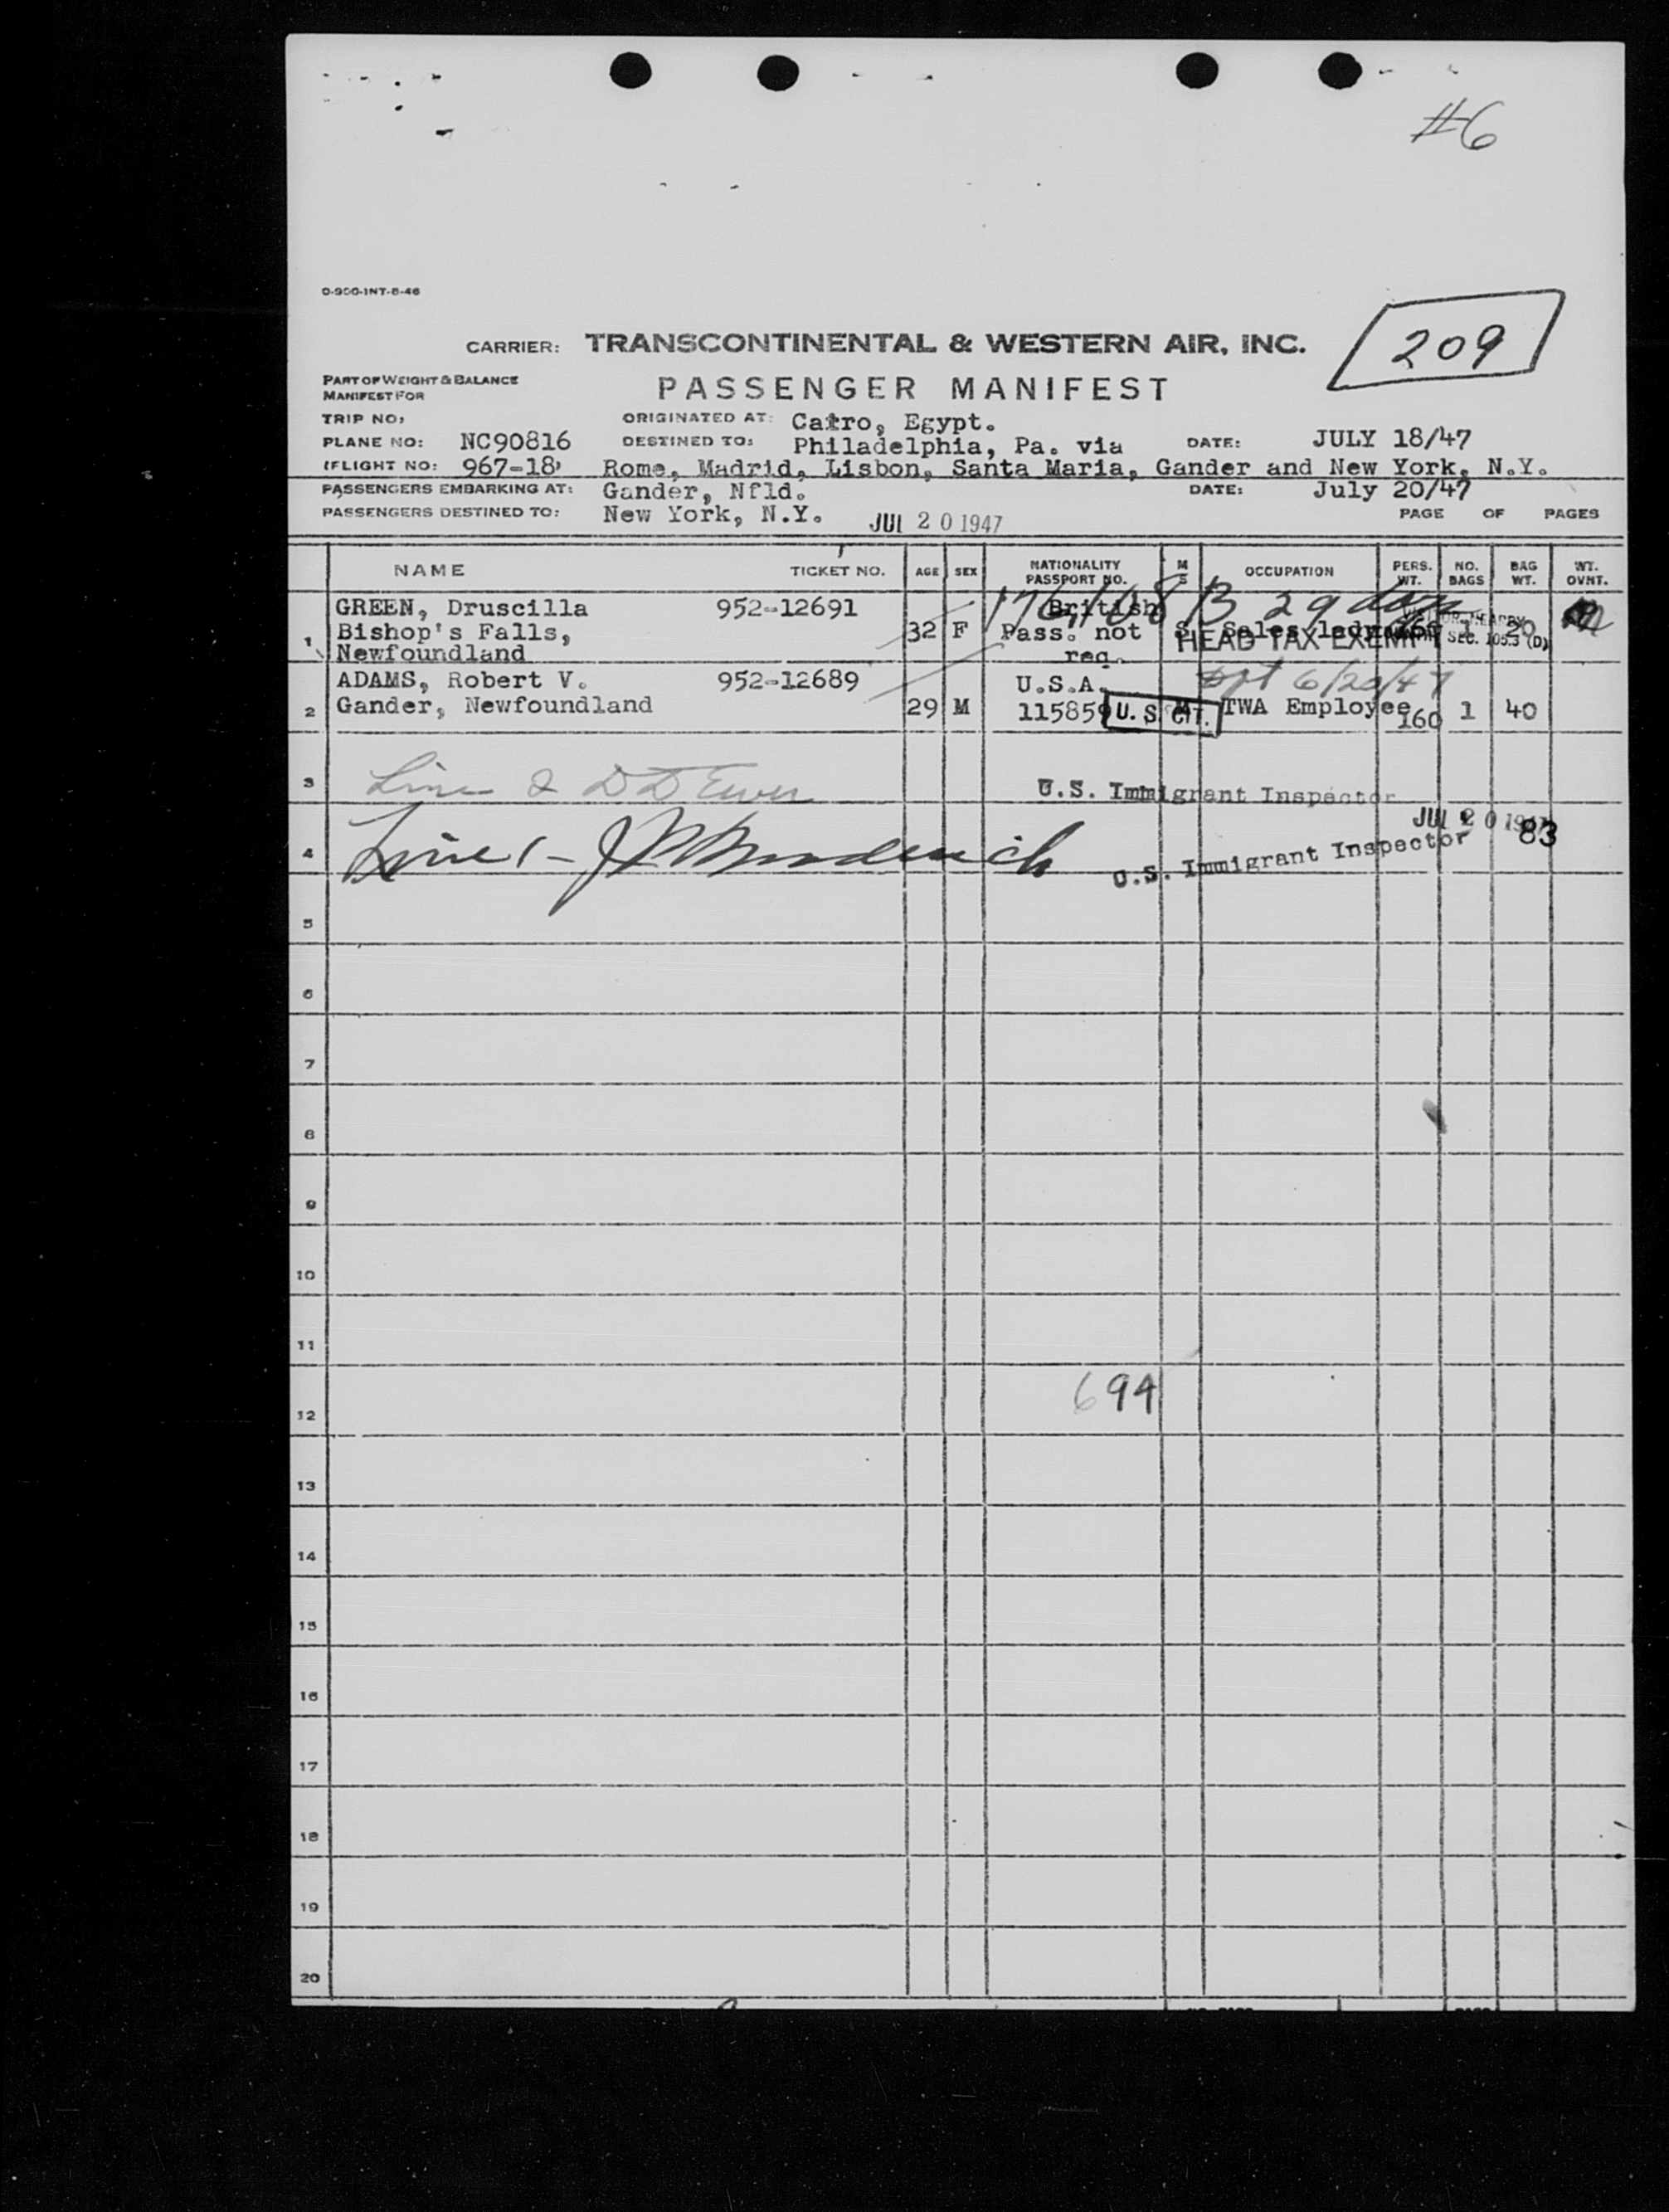 #6
O-900-INT-8-46
209
CARRIER: TRANSCONTINENTAL & WESTERN AIR, INC.
PART OF WEIGHT & BALANCE
MANIFEST FOR
PASSENGER MANIFEST
TRIP NO:
ORIGINATED AT: Cairo, Egypt.
PLANE NO: NC90816 DESTINED TO: Philadelphia, Pa. via DATE: JULY 18/47
(FLIGHT NO: 967-18) Rome, Madrid, Lisbon, Santa Maria, Gander and New York, N.Y.
PASSENGERS EMBARKING AT: Gander, Nfld. DATE: July 20/47
PASSENGERS DESTINED TO: New York, N.Y. JUL 20 1947 PAGE OF PAGES
NAME TICKET NO. AGE SEX NATIONALITY PASSPORT NO. M S OCCUPATION PERS. WT. NO. BAGS BAG WT. WT. OVNT.
GREEN, Druscilla 952-12691 British 29 days
1 Bishop's Falls, 32 F Pass. not S Sales lady 1
HEAD TAX EXEMPT SEC. 105.3 (D)
Newfoundland req.
ADAMS, Robert V. 952-12689 U.S.A. 6/20/47
2 Gander, Newfoundland 29 M 115859 U.S. CIT. TWA Employee 160 1 40
3 Line 2 U.S. Immigrant Inspector
JUL 20 1947 83
4 Line 1 - U.S. Immigrant Inspector
5
6
7
8
9
10
11
694
12
13
14
15
16
17
18
19
20